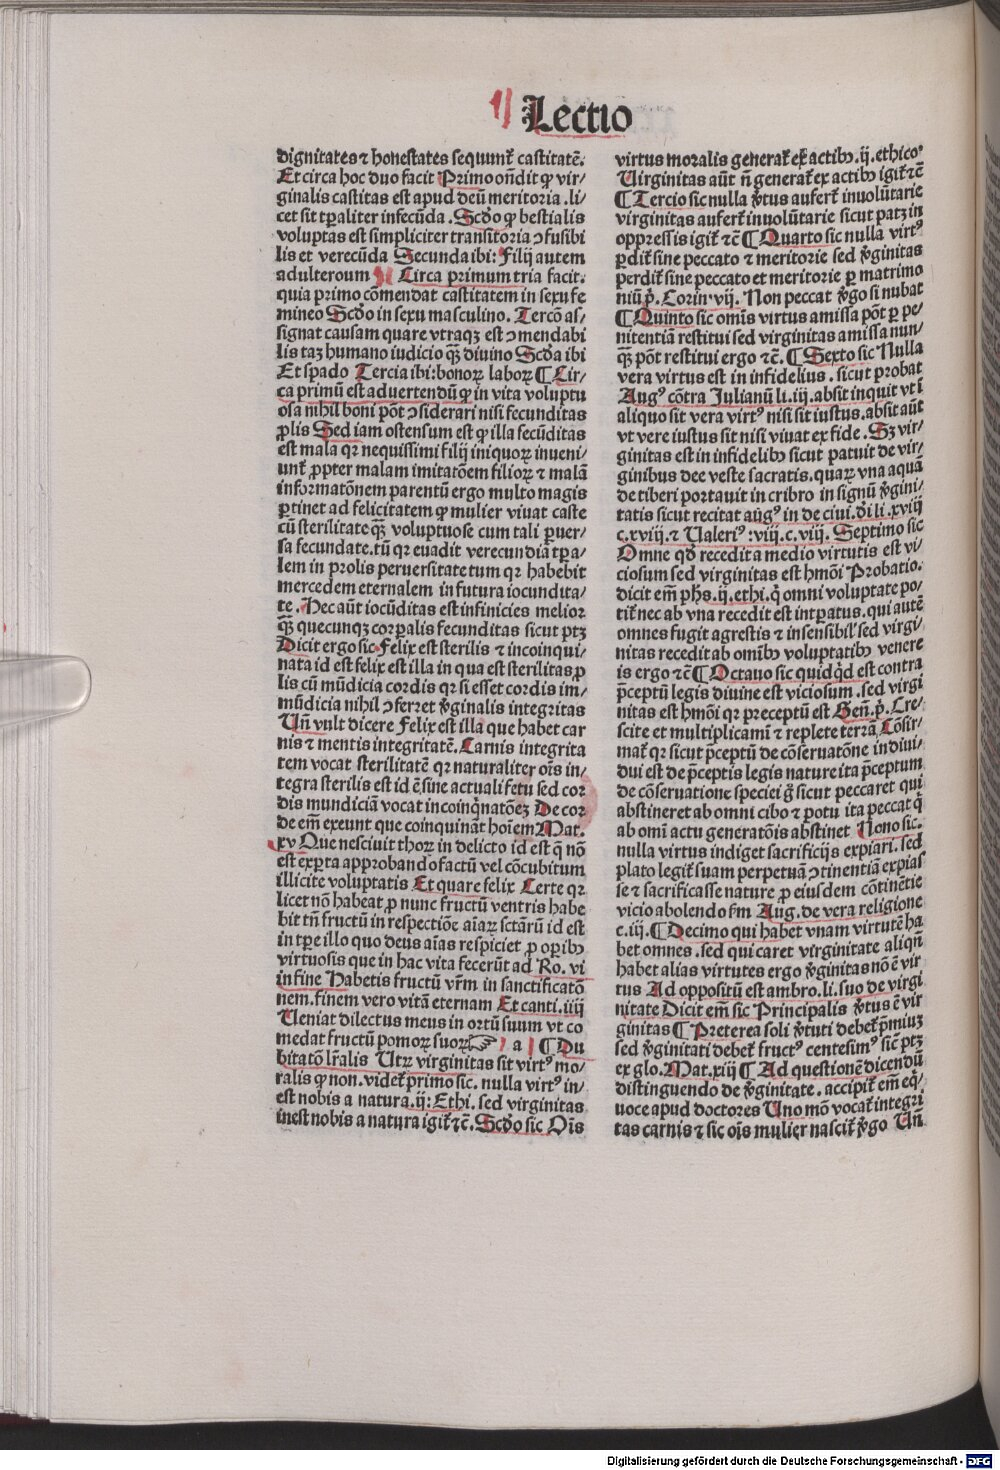 Lectio
dignitates ⁊ honestates sequunt᷑ castitatē.
Et circa hoc duo facit Primo oñdit ꝙ vir⸗
ginalis castitas est apud deū meritoria . li⸗
cet sit tꝑaliter infecūda . Scḋo ꝙ bestialis
voluptas est simpliciter transitoria ꝯfusibi
lis et verecūda Secunda ibi: Filij autem
adulteroum ¶ Circa primum tria facit.
quia primo cōmendat castitatem in sexu fe
mineo Scḋo in sexu masculino. Tercō as⸗
signat causam quare vtraqꝫ est ꝯmendabi
lis taꝫ humano iudicio qꝫ̄ diuino Scḋa ibi
Et spado Tercia ibi: bonoꝝ laboꝝ ¶ Cir⸗
ca primū est aduertendū ꝙ in vita voluptu
osa nihil boni pōt ꝯsiderari nisi fecunditas
ꝓlis Sed iam ostensum est ꝙ illa fecūditas
est mala qꝛ nequissimi filij iniquoꝝ inueni⸗
unt᷑ ꝓpter malam imitatōem filioꝝ ⁊ malā
informatōnem parentū ergo multo magis
ꝑtinet ad felicitatem ꝙ mulier viuat caste
cū sterilitate qꝫ̄ voluptuose cum tali ꝑuer⸗
sa fecundate. tū qꝛ euadit verecundiā tꝑa⸗
lem in prolis peruersitate tum qꝛ habebit
mercedem eternalem in futura iocundita⸗
te . Hec aūt iocūditas est infinicies melior
qꝫ̄ quecunqꝫ corꝑalis fecunditas sicut ptꝫ
Dicit ergo sic. Felix est sterilis ⁊ incoinqui⸗
nata id est felix est illa in qua est sterilitas ꝓ
lis cū mūdicia cordis qꝛ si esset cordis im⸗
mūdicia nihil ꝯferret v̓ginalis integritas
Uñ vult dicere Felix est illa que habet car
nis ⁊ mentis integritatē. Carnis integrita
tem vocat sterilitatē qꝛ naturaliter oīs in⸗
tegra sterilis est id ē sine actuali fetu sed cor
dis mundiciā vocat incoinq̇natōeꝫ De cor
de em̄ exeunt que coinquināt hoīem Mat.
xv Que nesciuit thoꝝ in delicto id est q̄ nō
est exꝑta approbando factū vel cōcubitum
illicite voluptatis Et quare felix Certe qꝛ
licet nō habeat ꝓ nunc fructū ventris habe
bit tn̄ fructū in respectiōe aīaꝝ sctārū id est
in tꝑe illo quo deus aīas respiciet ꝓ oꝑibꝫ
virtuosis que in hac vita fecerūt ad Ro. vi
in fine Habetis fructū vr̄m in sanctificatō
nem. finem vero vitā eternam Et canti. iiij
Ueniat dilectus meus in ortū suum vt co
medat fructū pomoꝝ suoꝝ ☞ a ¶ Du
bitatō lr̄alis Utꝝ virginitas sit virtꝰ mo⸗
ralis ꝙ non. videt᷑ primo sic. nulla virtꝰ in⸗
est nobis a natura. ij: Ethi. sed virginitas
inest nobis a natura igit᷑ ⁊c̄. Scḋo sic Oīs
virtus moralis generat᷑ ex actibꝫ. ij. ethicoꝝ
Uirginitas aūt ñ generat᷑ ex actibꝫ igit᷑ ⁊c̄
¶ Tercio sic nulla v̓tus aufert᷑ inuolūtarie
virginitas aufert᷑ inuolūtarie sicut patꝫ in
oppressis igit᷑ ⁊c̄ ¶ Quarto sic nulla virtꝰ
ꝑdit᷑ sine peccato ⁊ meritorie sed v̓ginitas
perdit᷑ sine peccato et meritorie ꝑ matrimo
niū p̄. Corin. vij. Non peccat v̓go si nubat
¶ Quinto sic omīs virtus amissa pōt ꝑ pe⸗
nitentiā restitui sed virginitas amissa nun⸗
qꝫ pōt restitui ergo ⁊c̄. ¶ Sexto sic Nulla
vera virtus est in infidelius . sicut probat
Augꝰ cōtra Julianū li. iij. absit inquit vt ī
aliquo sit vera virtꝰ nisi sit iustus. absit aūt
vt vere iustus sit nisi viuat ex fide . Sꝫ vir⸗
ginitas est in infidelibꝫ sicut patuit de vir⸗
ginibus dee veste sacratis. quaꝝ vna aquā
de tiberi portauit in cribro in signū v̓gini⸗
tatis sicut recitat augꝰ in de ciui. di li. xviij
c. xviij. ⁊ Ualeriꝰ : viij. c. viij. Septimo sic
Omne qḋ recedit a medio virtutis est vi⸗
ciosum sed virginitas est hmōi Probatio.
dicit em̄ phs. ij. ethi. q̇ omni voluptate po⸗
tit᷑ nec ab vna recedit est intꝑatus. qui autē
omnes fugit agrestis ⁊ insensibil' sed virgi⸗
nitas recedit ab omībꝫ voluptatibꝫ venere
is ergo ⁊c̄ ¶ Octauo sic quidq̇d est contra
p̄ceptū legis diuine est viciosum . sed virgi
nitas est hmōi qꝛ preceptū est Geñ. p̄. Cre⸗
scite et multiplicami ⁊ replete terrā Cōfir⸗
mat᷑ qꝛ sicut p̄ceptū de cōseruatōne indiui⸗
dui est de p̄ceptis legis nature ita p̄ceptum
de cōseruatione speciei g̊ sicut peccaret qui
abstineret ab omni cibo ⁊ potu ita peccat q̇
ab omī actu generatōis abstinet Nono sic.
nulla virtus indiget sacrificijs expiari. sed
plato legit᷑ suam perpetuā ꝯtinentiā expias
se ⁊ sacrificasse nature ꝓ eiusdem cōtinētie
vicio abolendo fm̄ Aug. de vera religione
c. iij. ¶ Decimo qui habet vnam virtutē ha
bet omnes . sed qui caret virginitate aliqñ
habet alias virtutes ergo v̓ginitas nō ē vir
tus Ad oppositū est ambro. li. suo de virgi
nitate Dicit em̄ sic Principalis v̓tus ē vir
ginitas ¶ Preterea soli v̓tuti debet᷑ p̄miuꝫ
sed v̓ginitati debet᷑ fructꝰ centesimꝰ sic̄ ptꝫ
ex glo. Mat. xiij ¶ Ad questionē dicendū
distinguendo de v̓ginitate . accipit᷑ em̄ eq̇⸗
uoce apud doctores Uno mō vocat᷑ integri
tas carnis ⁊ sic oīs mulier nascit᷑ v̓go Uñ
Digitalisierung gefördert durch die Deutsche Forschungsgemeinschaft - DFG